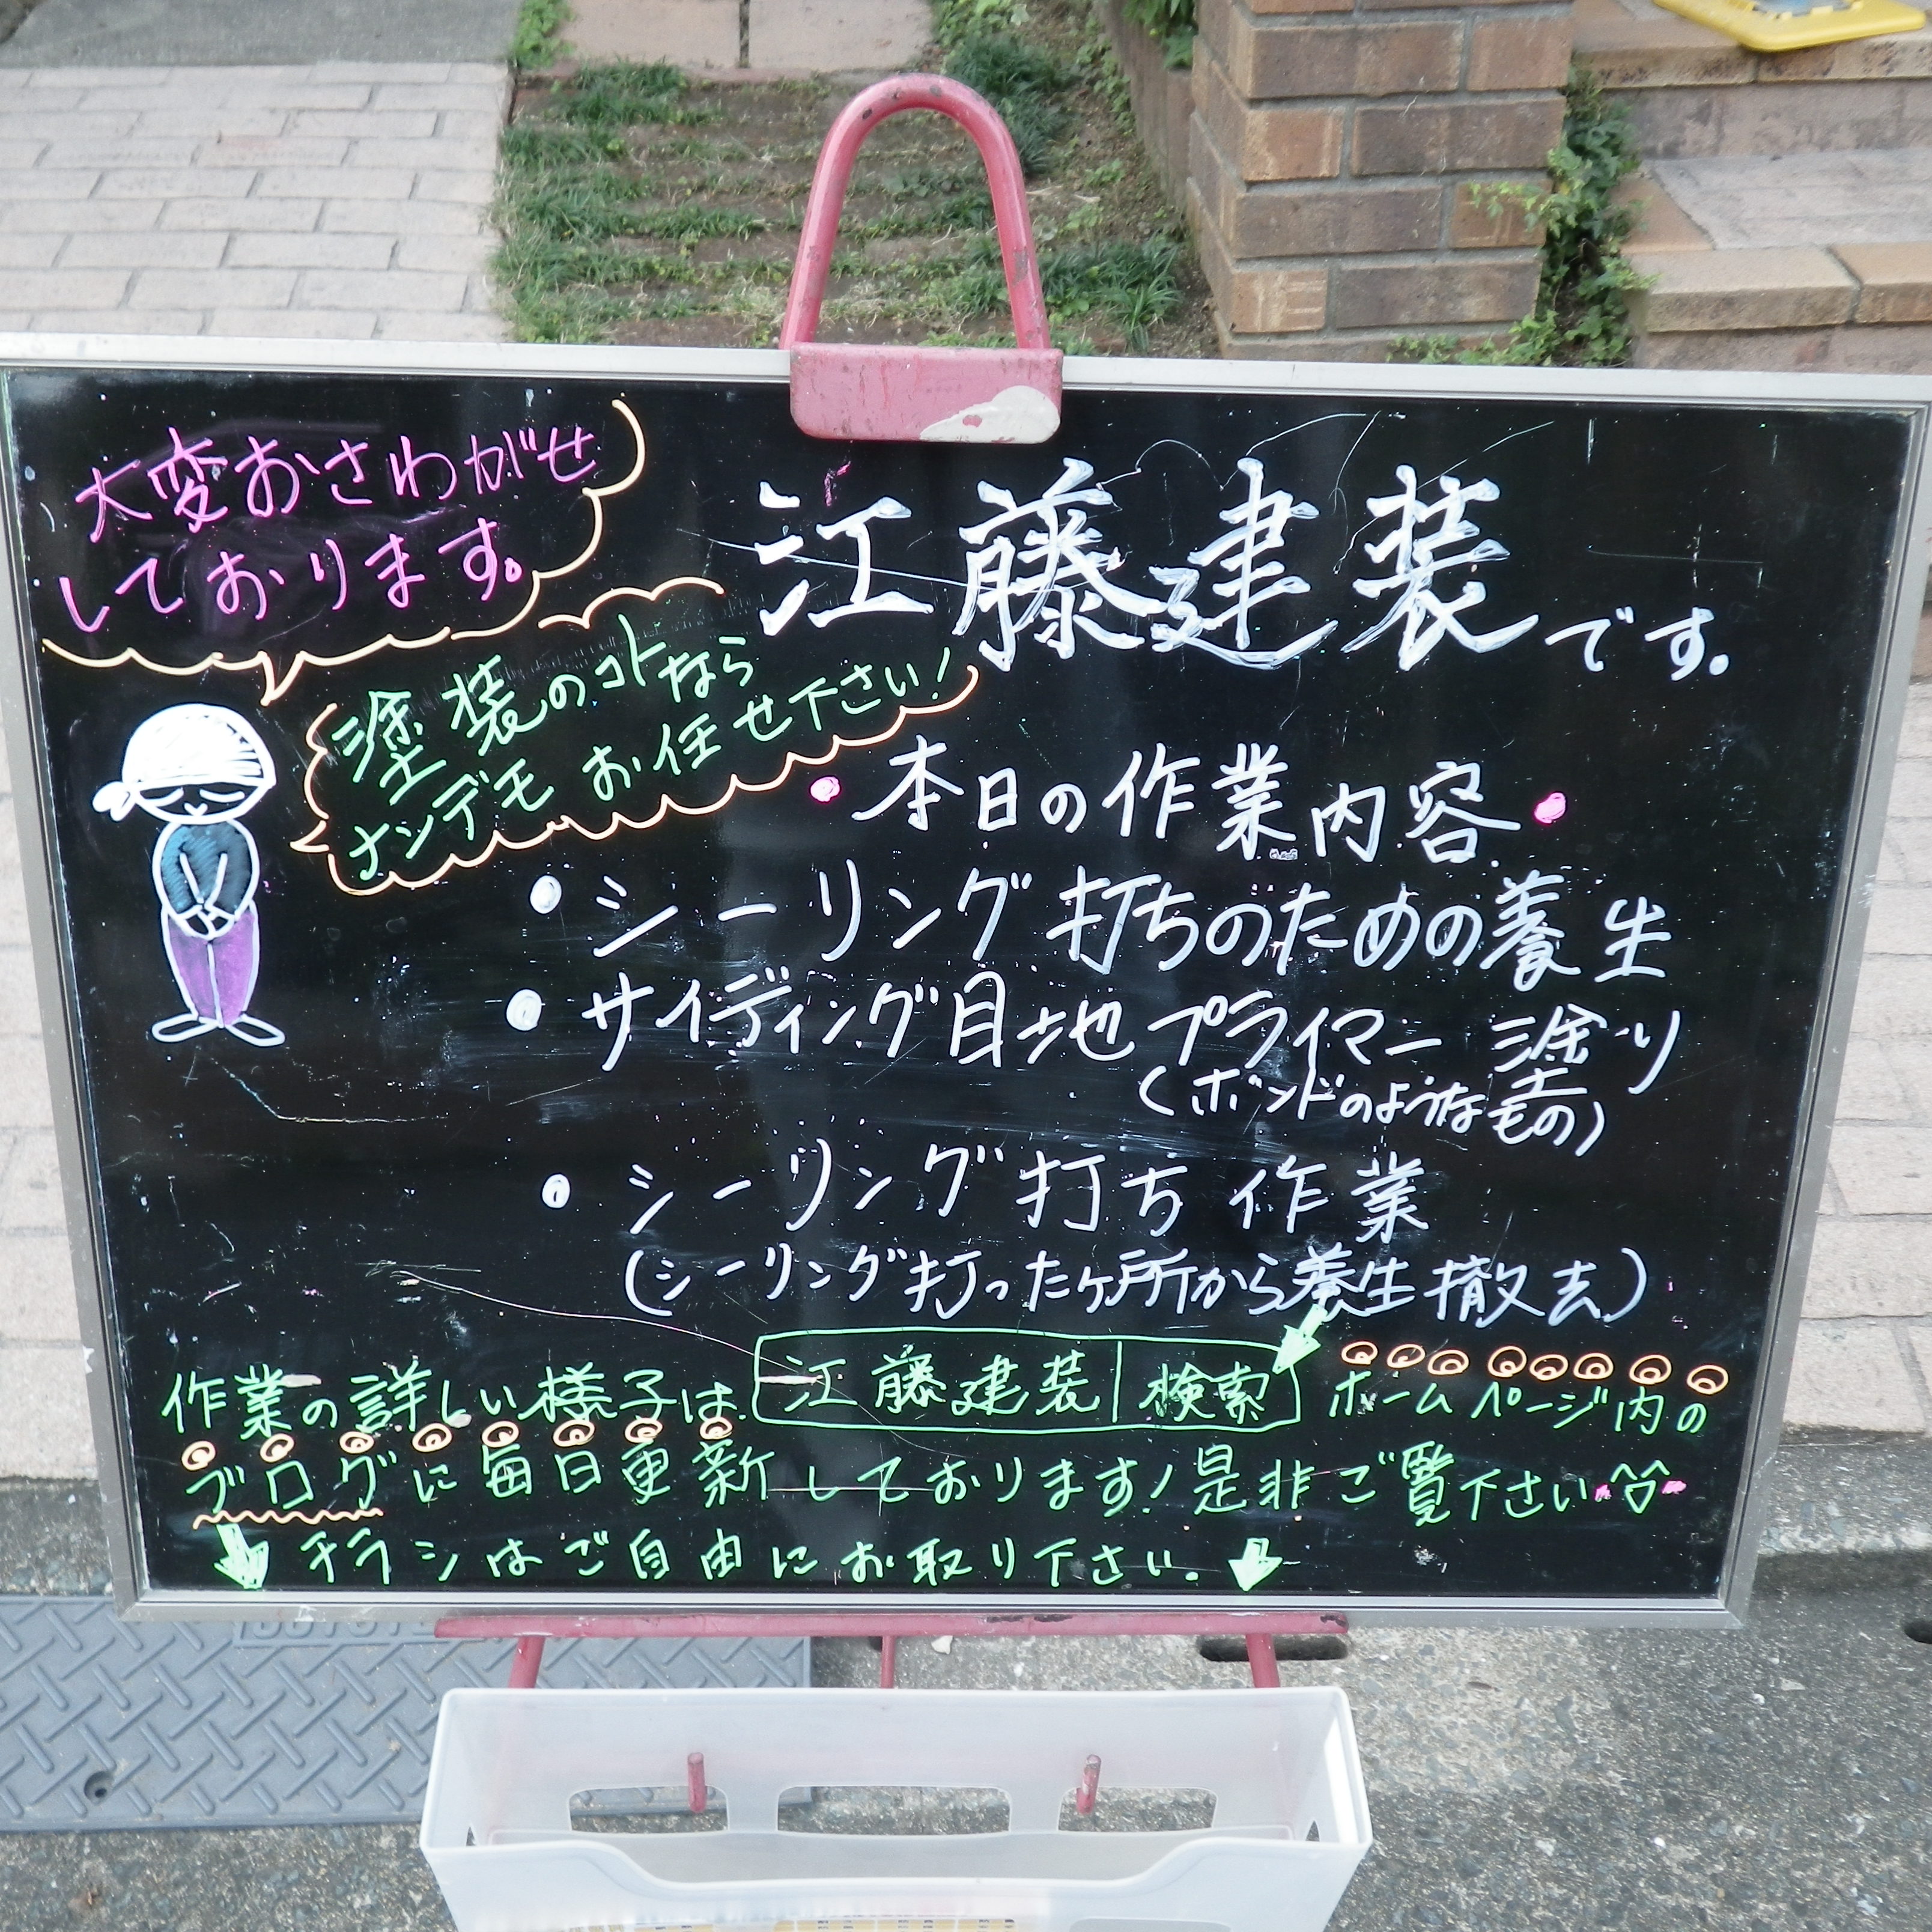 大変おさわがせ
しております。
江藤建装です.
塗装のコトなら
ナンデモお任せ下さい!
本日の作業内容
・シーリング打ちのための養生
・サイディング目地プライマー塗り
(ボンドのようなもの)
・シーリング打ち作業
(シーリング打ったヶ所から養生撤去)
作業の詳しい様子は 江藤建装 検索 ホームページ内の
ブログに毎日更新しております!是非ご覧下さい
チラシはご自由にお取り下さい.